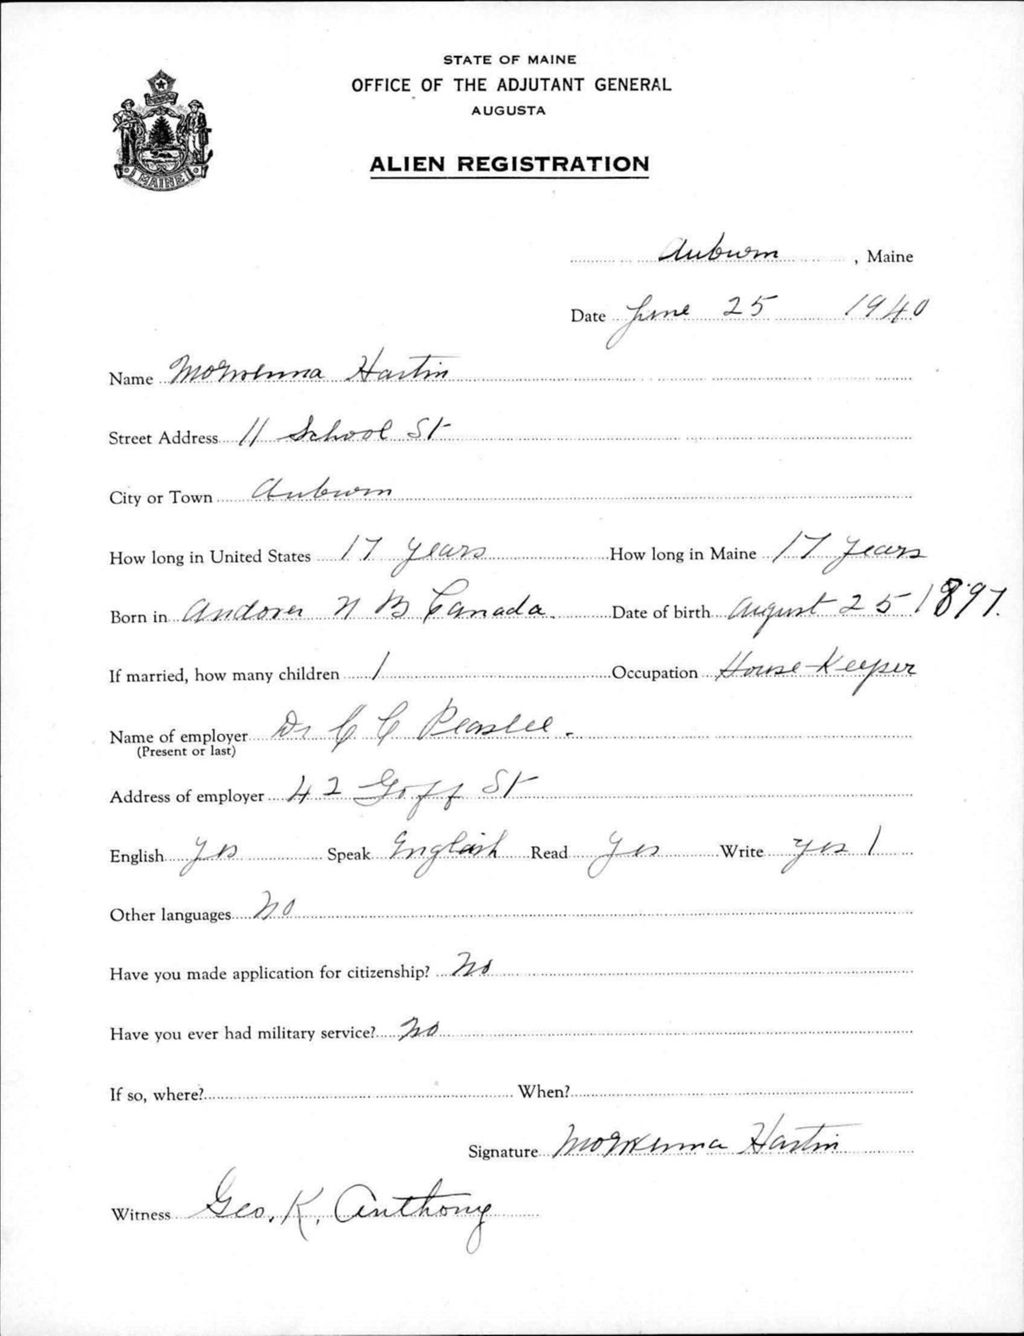 STATE OF MAINE
OFFICE OF THE ADJUTANT GENERAL
AUGUSTA
ALIEN REGISTRATION
MAINE
Auburn, Maine
Date June 25 1940
Name Morwenna Hartin
Street Address 11 School St
City or Town Auburn
How long in United States 17 years How long in Maine 17 years
Born in Andover N B Canada. Date of birth August 25 1897.
If married, how many children 1 Occupation House-Keeper
Name of employer Dr C C Peaslee.
(Present or last)
Address of employer 42 Goff St
English Yes Speak English Read Yes Write yes
Other languages No
Have you made application for citizenship? No
Have you ever had military service? No
If so, where? When?
Signature Morwenna Hartin
Witness Geo. K. Anthony